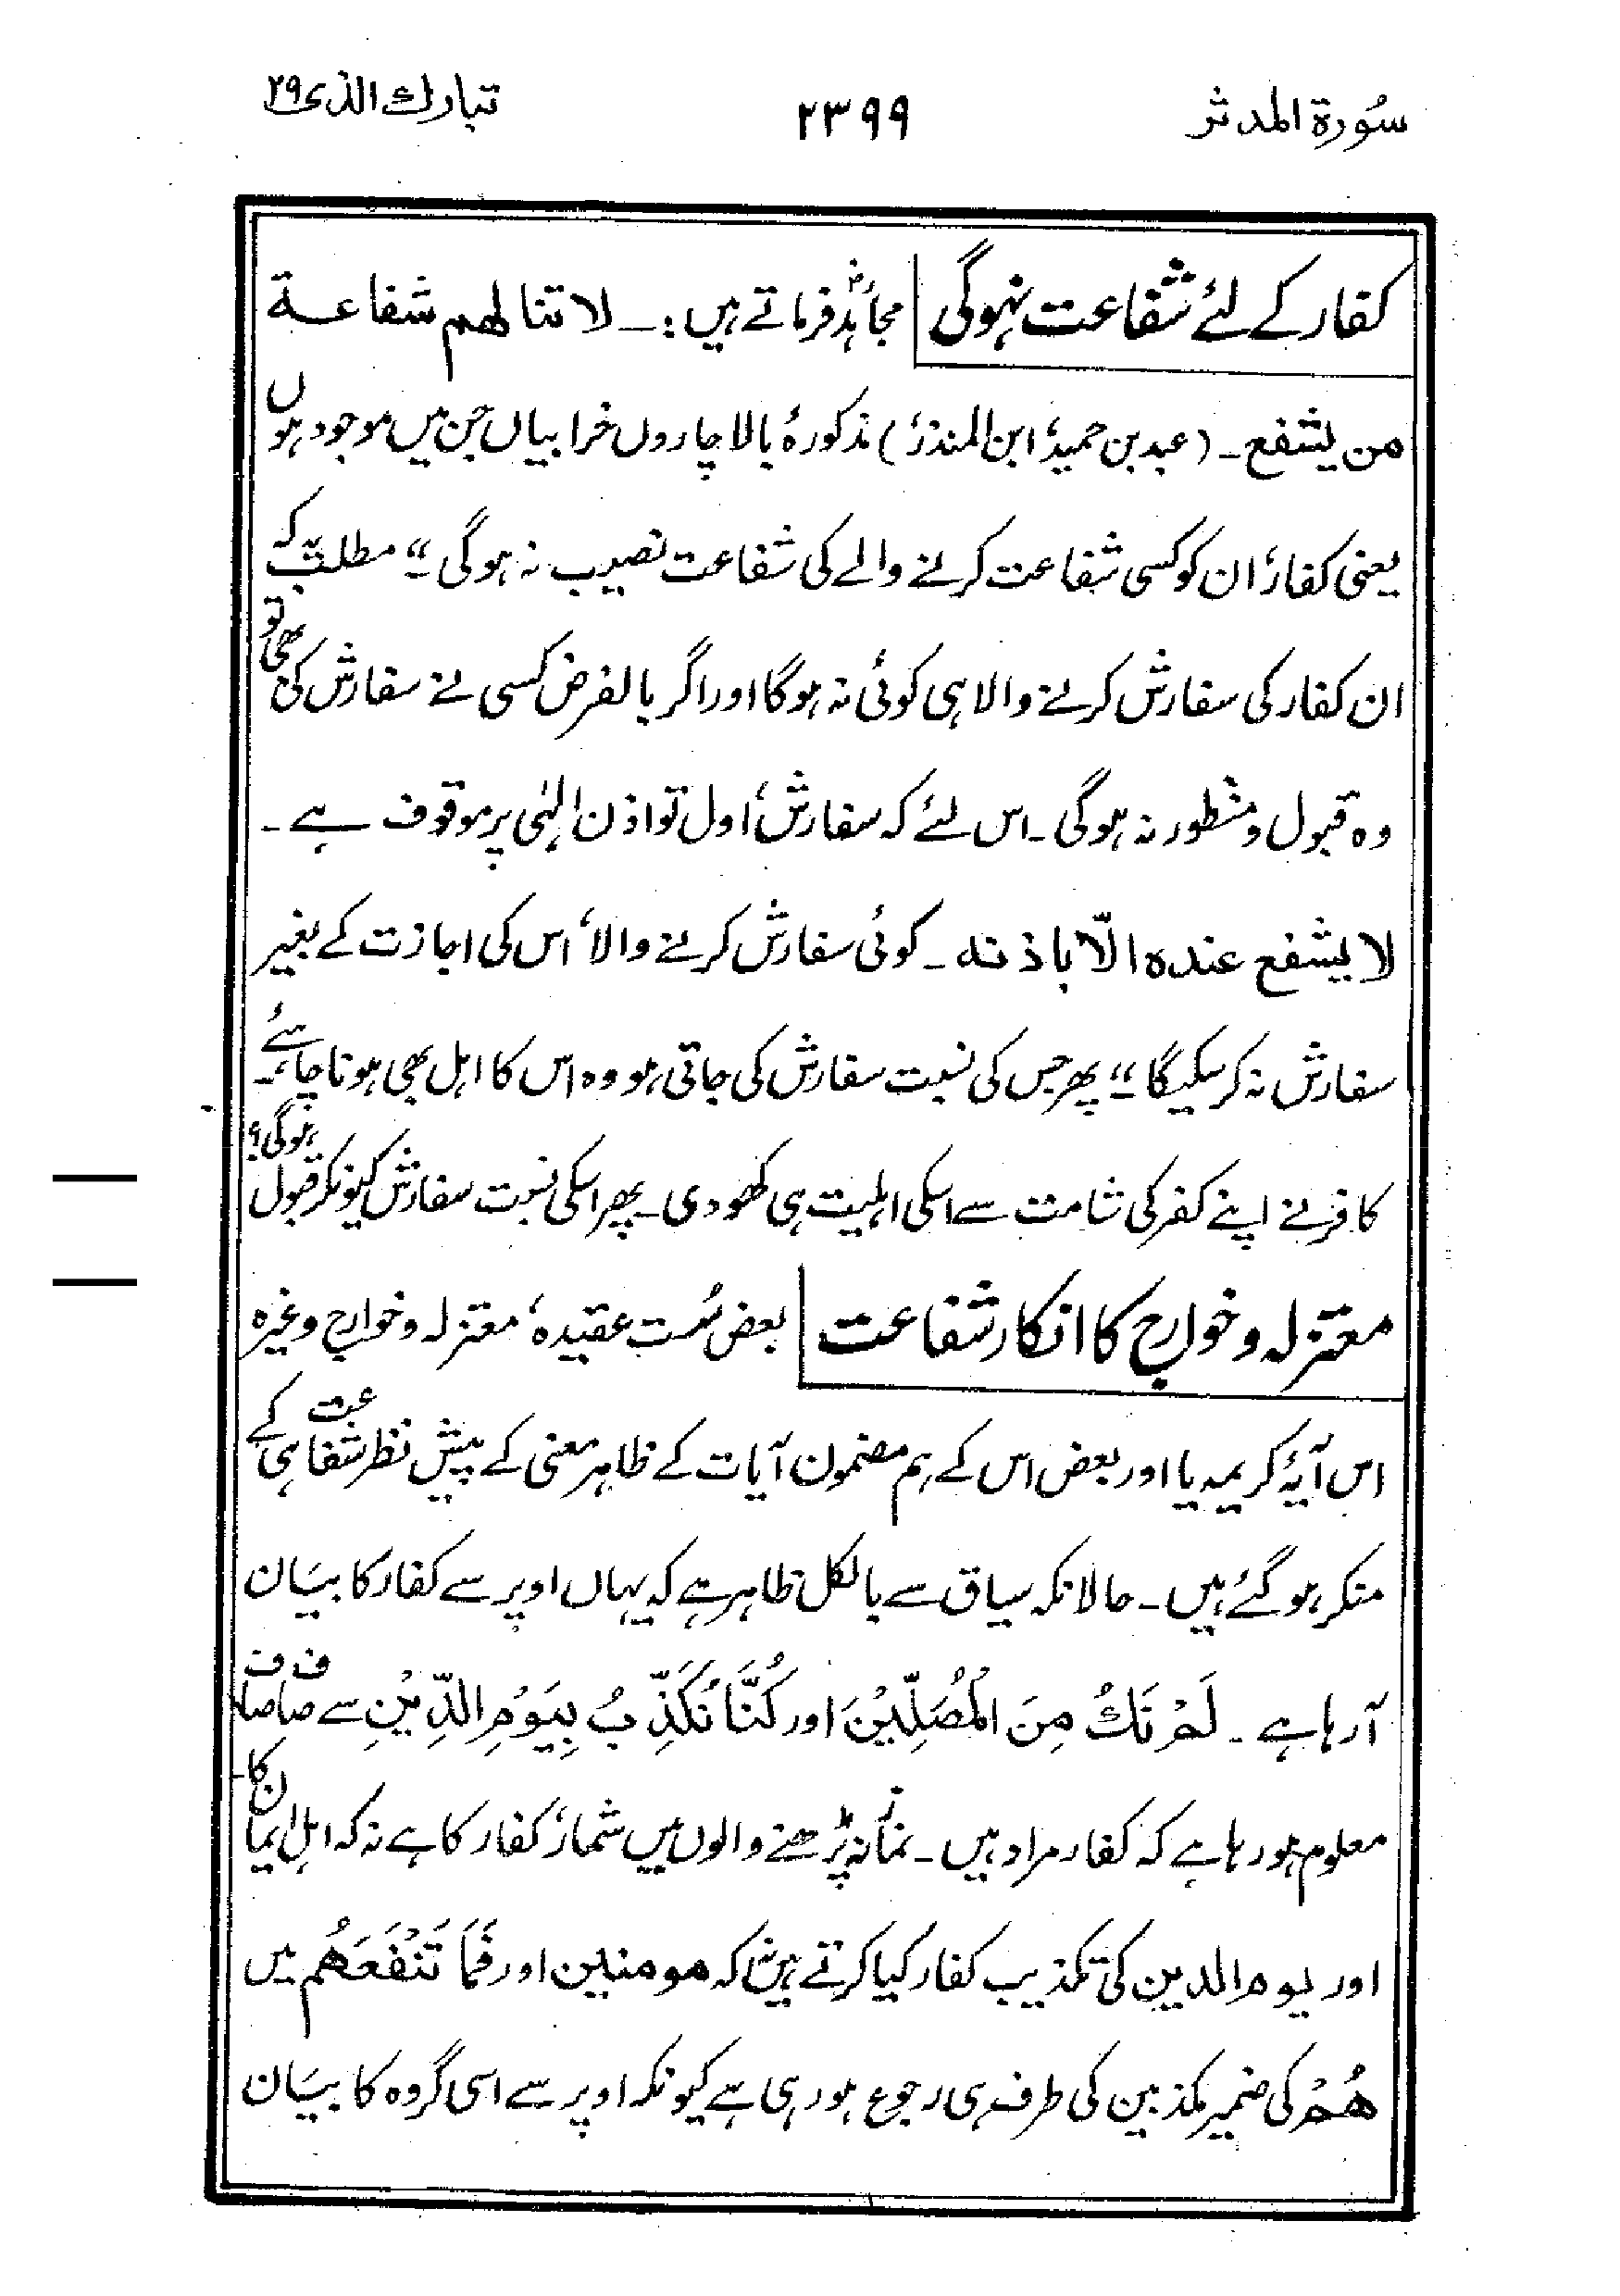 سُورة المدثر ۲۳۹۹ تبارك الذى ۲۹
کفار کے لئے شفاعت نہوگی مجاہدؒ فرماتے ہیں :۔ لا تنالهم شفاعة
من يشفع ۔ (عبد بن حمید، ابن المنذر) مذکورۂ بالا چاروں خرابیاں جن میں موجود ہوں
یعنی کفار، ان کو کسی شفاعت کرنے والے کی شفاعت نصیب نہ ہوگی "۔ مطلب یہ کہ
ان کفار کی سفارش کرنے والا ہی کوئی نہ ہوگا اور اگر بالفرض کسی نے سفارش کی بھی تو
وہ قبول و منظور نہ ہوگی ۔ اس لئے کہ سفارش، اول تو اذن الٰہی پر موقوف ہے ۔
لا يشفع عنده الّا باذنه ۔ کوئی سفارش کرنے والا، اس کی اجازت کے بغیر
سفارش نہ کر سکیگا "۔ پھر جس کی نسبت سفارش کی جاتی ہو وہ اس کا اہل بھی ہونا چاہئے ۔
کافر نے اپنے کفر کی شامت سے اسکی اہلیت ہی کھو دی ۔ پھر اسکی نسبت سفارش کیونکر قبول ہوگی ؟
معتزلہ و خوارج کا انکار شفاعت بعض سُست عقیدہ، معتزلہ و خوارج وغیرہ
اس آیۂ کریمہ یا اور بعض اس کے ہم مضمون آیات کے ظاہر معنی کے پیش نظر شفاعت ہی کے
منکر ہو گئے ہیں ۔ حالانکہ سیاق سے بالکل ظاہر ہے کہ یہاں اوپر سے کفار کا بیَان
آرہا ہے ۔ لَمْ نَكُ مِنَ الْمُصَلِّيْنَ اور كُنَّا نُكَذِّبُ بِيَوْمِ الدِّيْنِ سے صاف صاف
معلوم ہو رہا ہے کہ کفار مراد ہیں ۔ نماز نہ پڑھنے والوں میں شمار، کفار کا ہے نہ کہ اہل ایمان کا ۔
اور یوم الدین کی تکذیب کفار کیا کرتے ہیں نہ کہ مومنین اور فَمَا تَنْفَعُهُمْ میں
هُمْ کی ضمیر مکذبین کی طرف ہی رجوع ہو رہی ہے کیونکہ اوپر سے اسی گروہ کا بیَان